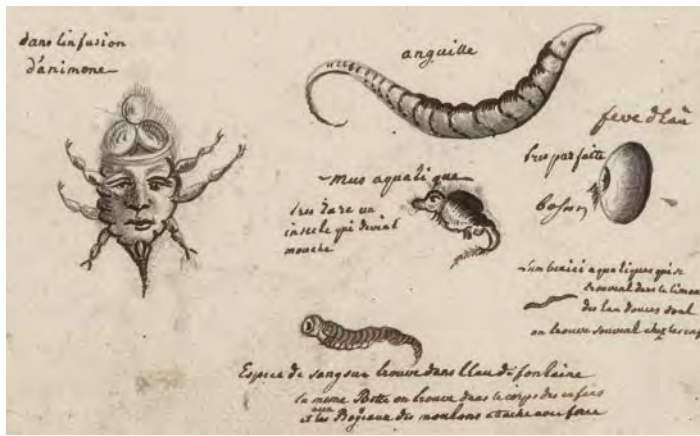 dans linfusion
d'animone
anguille
feve d'eau
tres parfaite
mus aquatique
tres rare un
insecte qui devient
mouche
aquatiques qui se
trouvent dans le limon
des eau douces dont
on trouve souvent chez les enf
Espece de sangsur trouvé dans l'eau de fontaine
la meme Bette on trouve dans le corps des enfans
et les Boyeaux des moutons attaché avec force